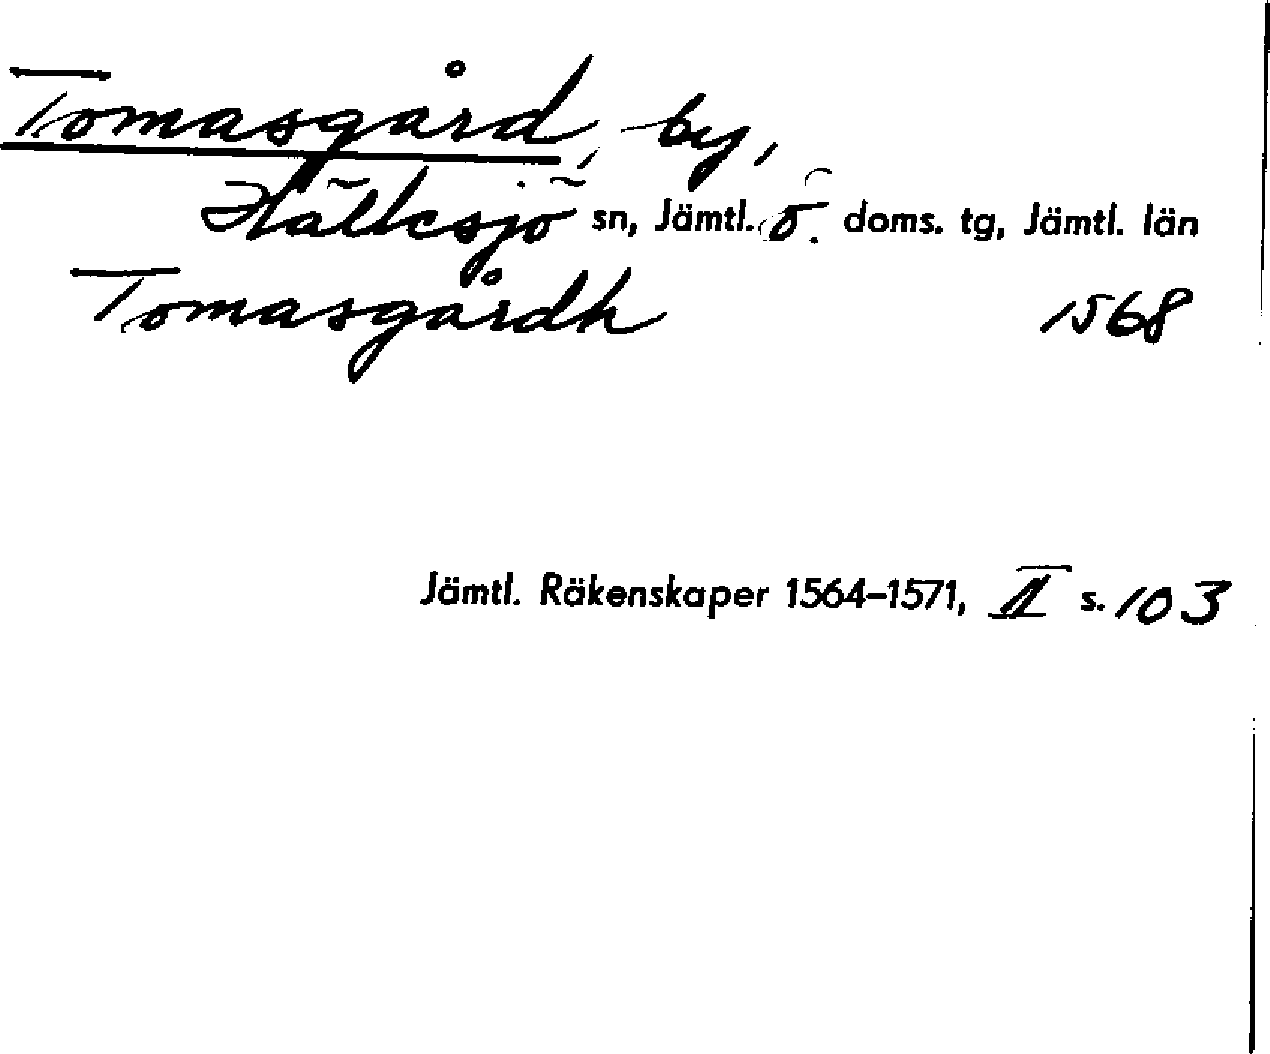 Tomasgård, by,
Hällesjö sn, Jämtl. ö. doms. tg, Jämtl. län
Tomasgårdh 1568
Jämtl. Räkenskaper 1564–1571, II s. 103